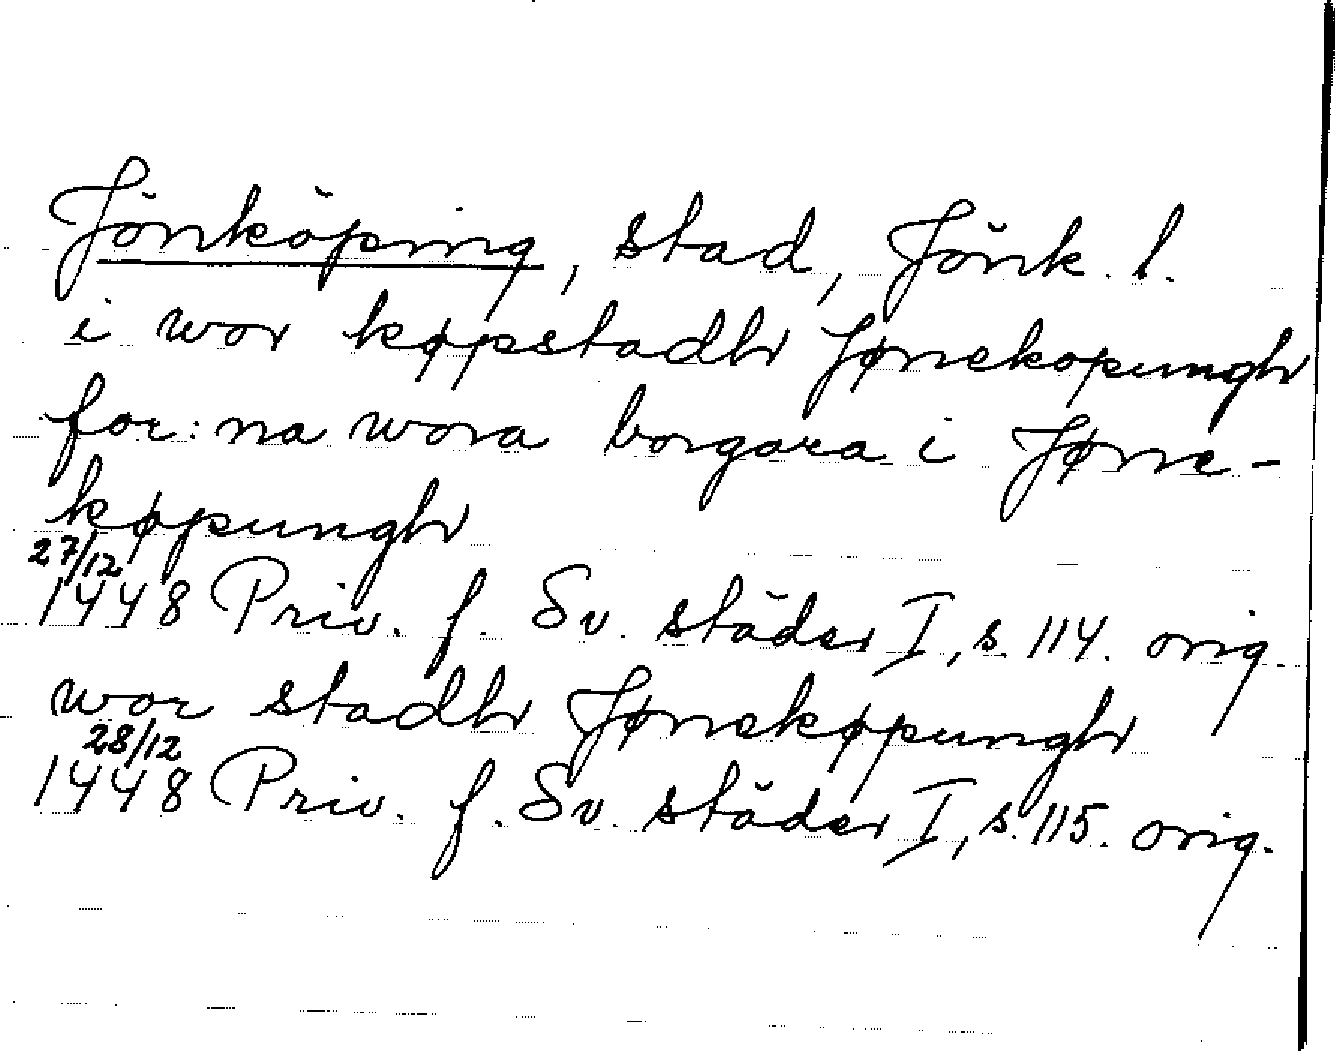 Jönköping, stad, Jönk. l.
i wor køpstadhr Jønekopungh
for:na wora borgara i Jøne-
køpungh
27/12
1448 Priv. f. Sv. städer I, s. 114. orig.
wor stadhr Jønekøpungh
28/12
1448 Priv. f. Sv. städer I, s. 115. orig.